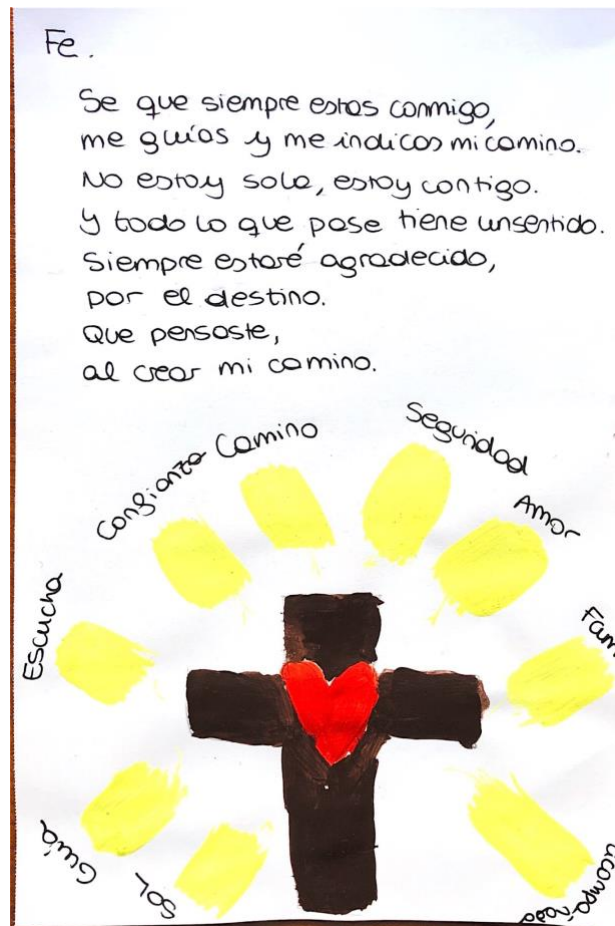 Fe.
Se que siempre estas conmigo,
me guías y me indicas mi camino.
No estoy sola, estoy contigo.
Y todo lo que pase tiene un sentido.
Siempre estaré agradecido,
por el destino.
Que pensaste,
al crear mi camino.
Escucha
Confianza
Camino
Seguridad
Amor
Guía
SOL